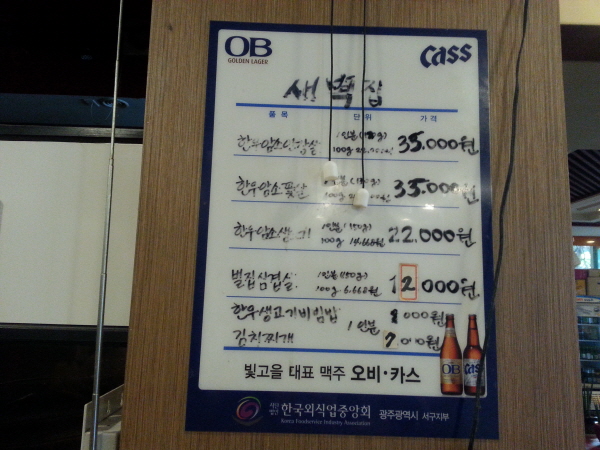 OB
GOLDEN LAGER
Cass
새벽집
품목 단위 가격
한우암소안창살 1인분 35.000원
100g
한우암소꽃살 35.000원
100g
한우암소생 기 1인분(150g) 22.000원
100g 14.666원
벌집삼겹살 1인분(150g) 12000원
100g 6.662원
한우생고기비빔밥 000원
1인분
김치찌개 7000원
OB Cass
빛고을 대표 맥주 오비·카스
사단법인 한국외식업중앙회 광주광역시 서구지부
Korea Foodservice Industry Association